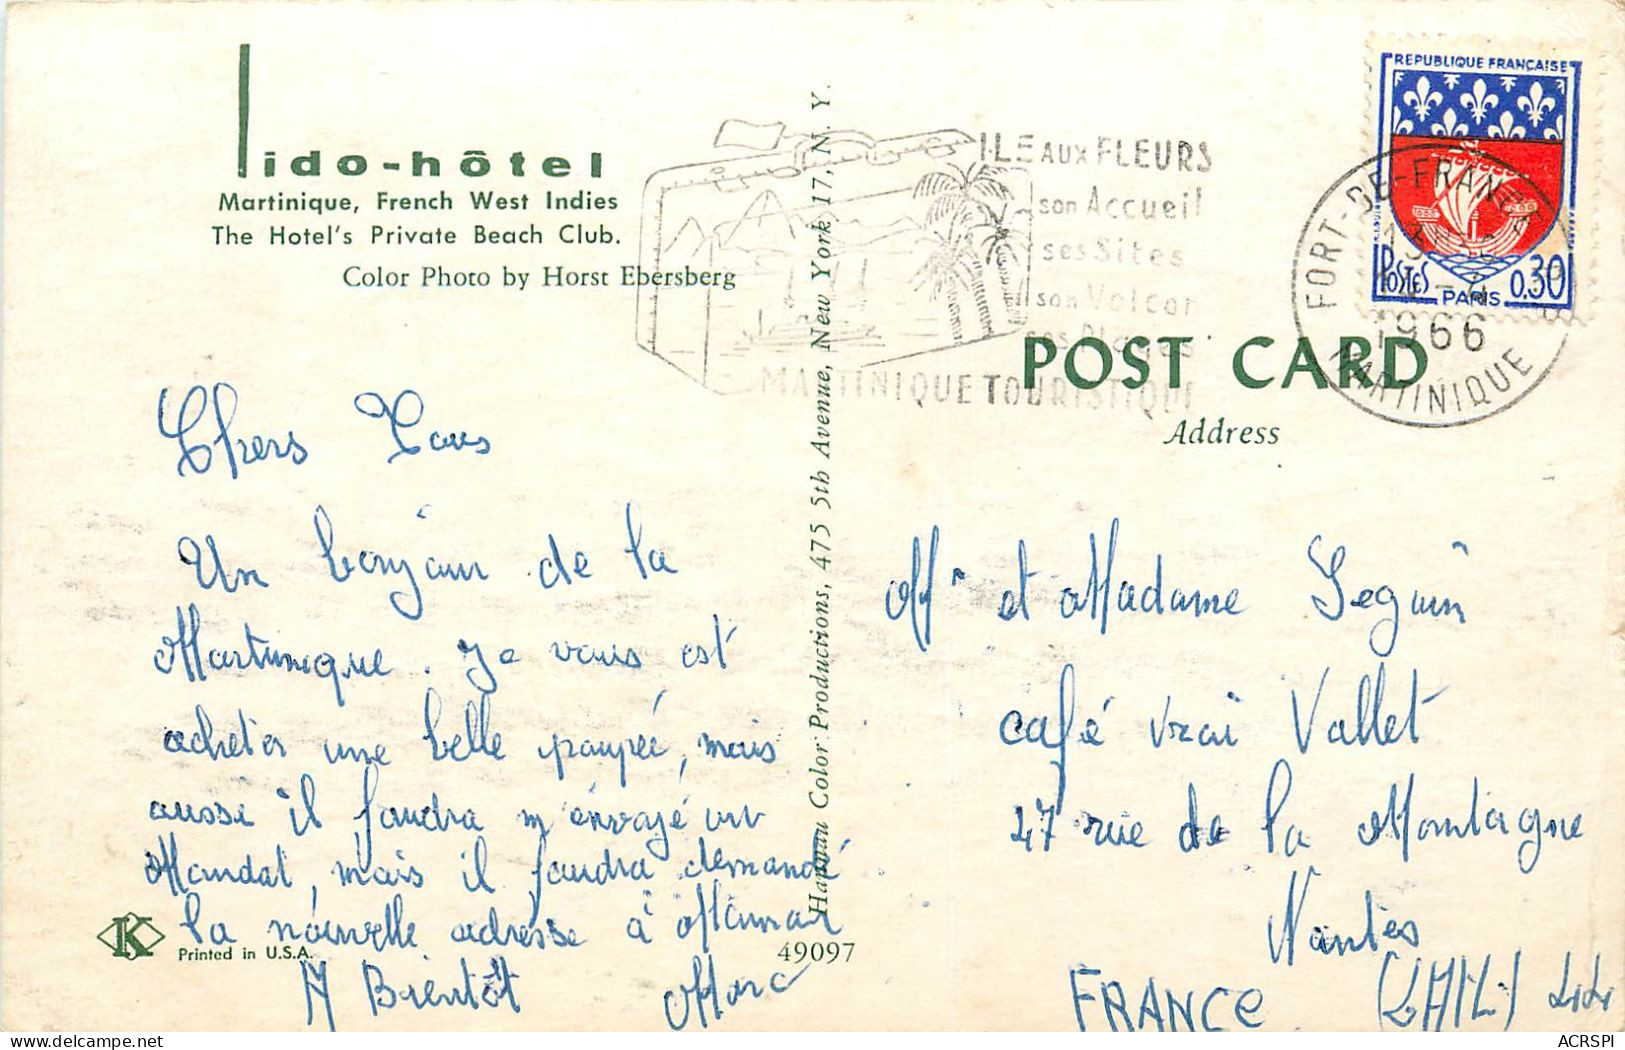 lido-hôtel
Martinique, French West Indies
The Hotel's Private Beach Club.
Color Photo by Horst Ebersberg
ILE AUX FLEURS
son Accueil
ses Sites
son Volcan
ses Plages
MARTINIQUE TOURISTIQUE
REPUBLIQUE FRANÇAISE
POSTES PARIS 0.30
FORT-DE-FRANCE
1966
MARTINIQUE
POST CARD
Address
Chers Tous
Un bonjour de la
Martinique. Je vous est
acheter une belle poupée, mais
aussi il faudra m'envoyé un
Mandat, mais il faudra demandé
la nouvelle adresse a Maman
A Bientôt Marc
Printed in U.S.A.
49097
Hannau Color Productions, 475 5th Avenue, New York, 17, N. Y.
Mr et Madame Seguin
café vrai Vallet
47 rue de la Montagne
Nantes
FRANCE
K
ACRSPI